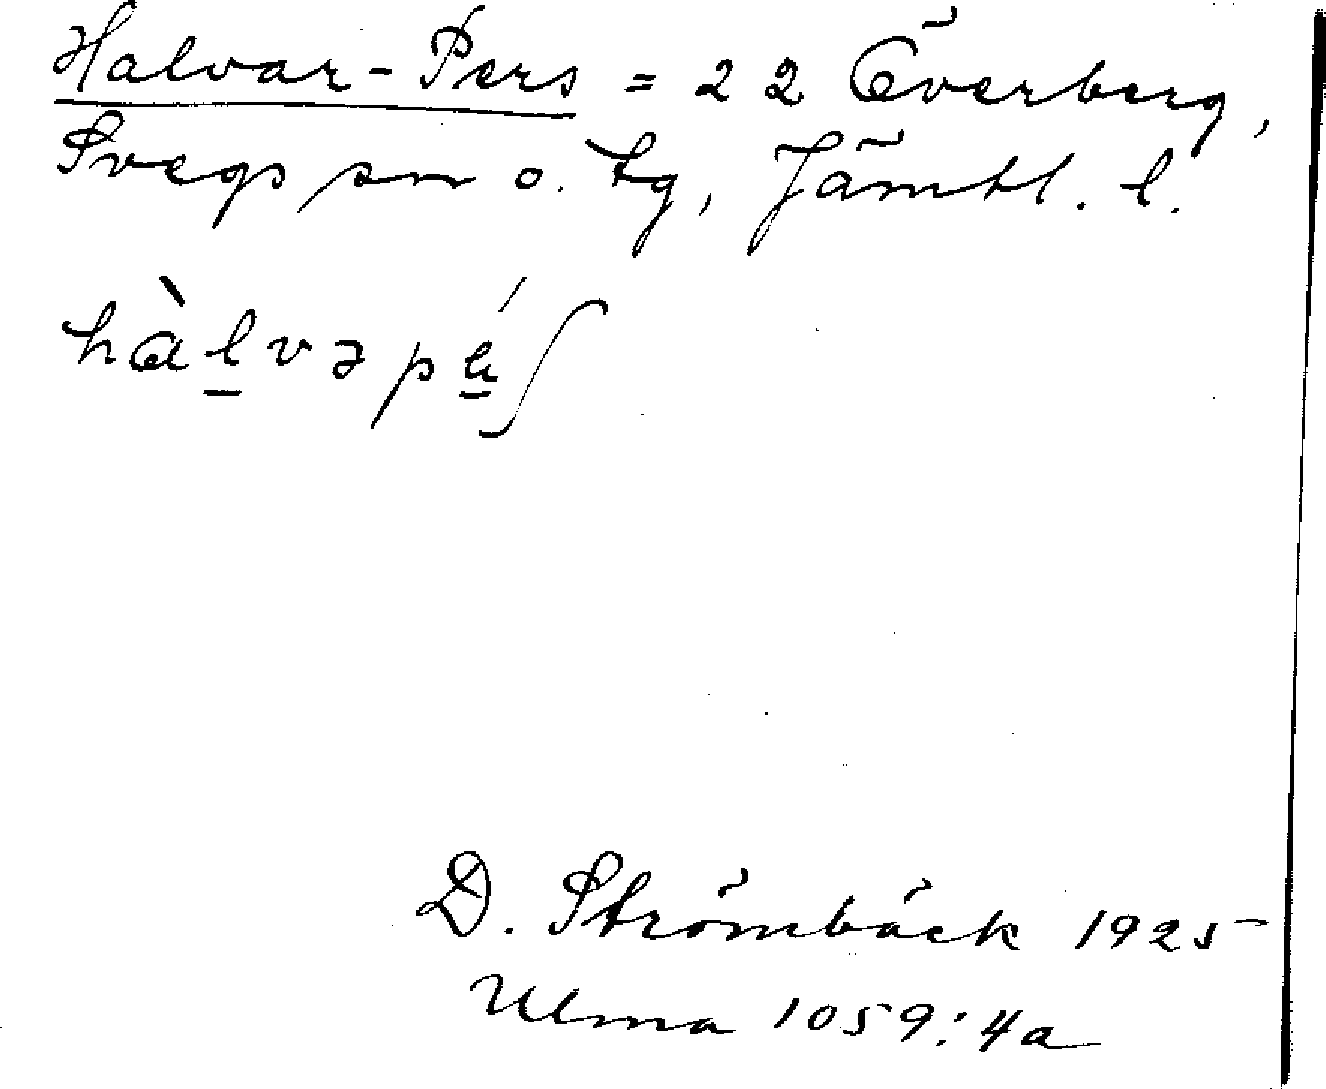 Halvar-Pers = 22 Överberg,
Svegs sn o. tg, Jämtl. l.
hàl̠vəpé̠ʃ
D. Strömbäck 1925
Ulma 1059:4a